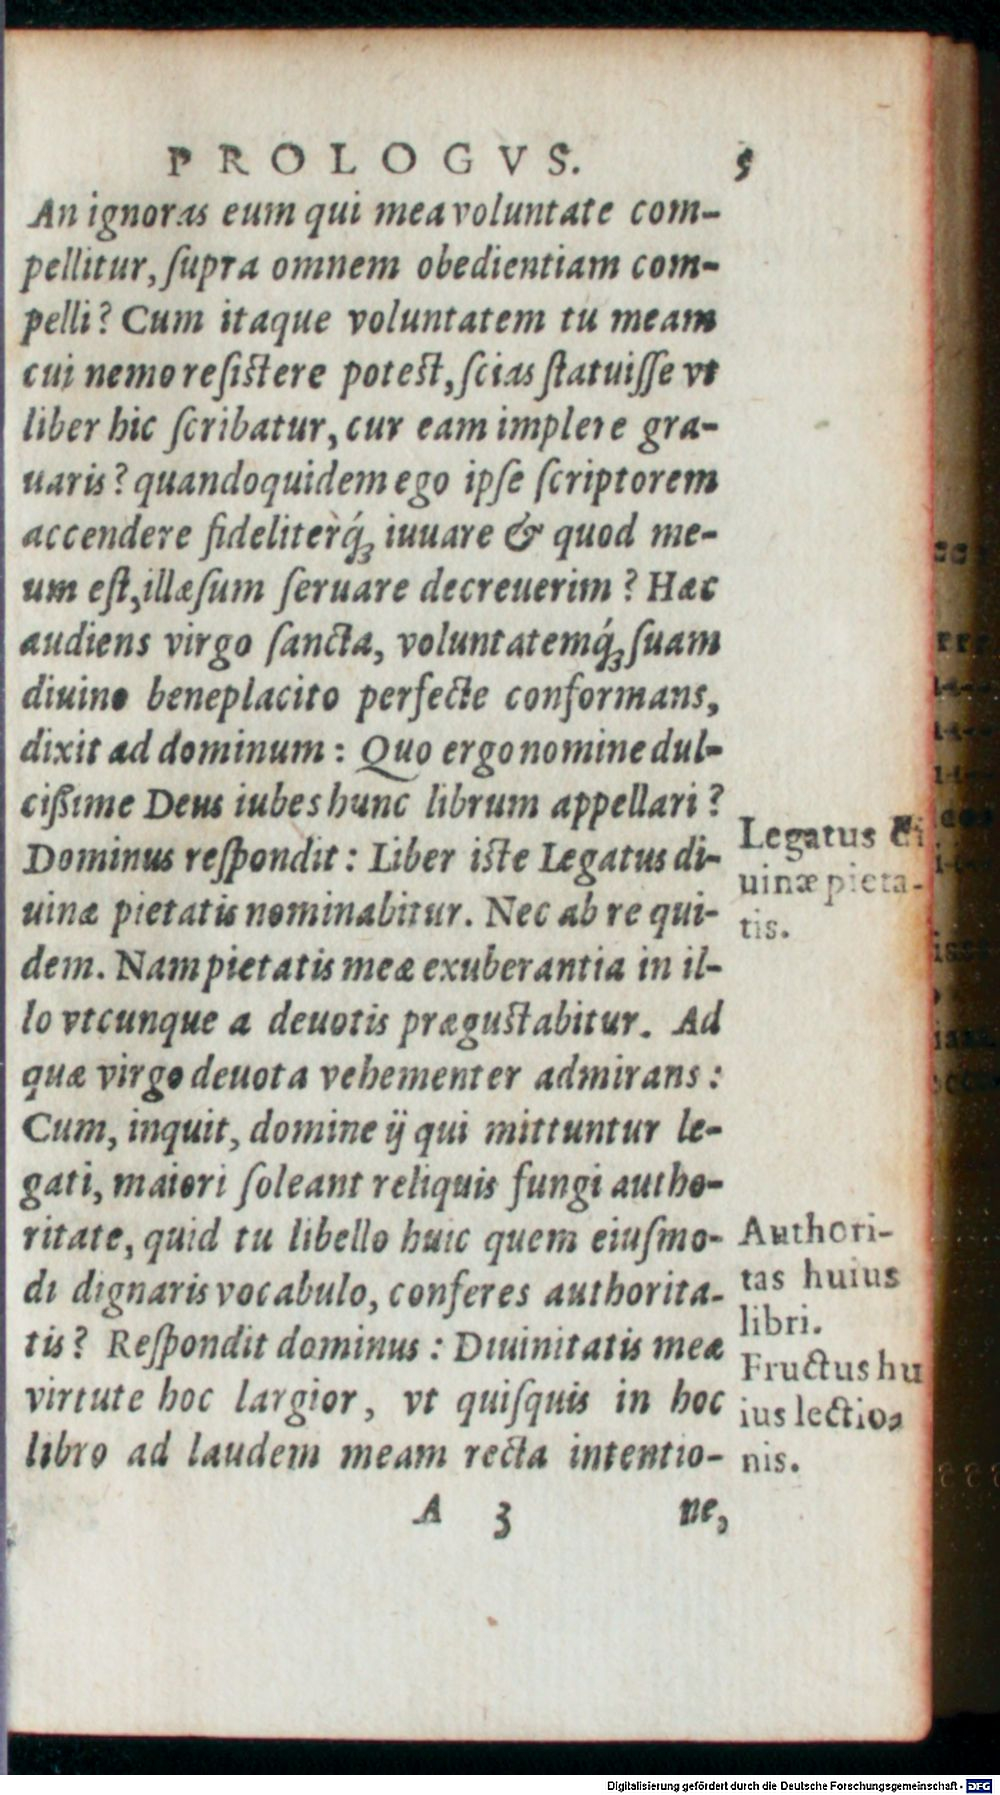 PROLOGVS. 5
An ignoras eum qui mea voluntate com-
pellitur, ſupra omnem obedientiam com-
pelli? Cum itaque voluntatem tu meam
cui nemo reſiſtere poteſt, ſcias ſtatuiſſe vt
liber hic ſcribatur, cur eam implere gra-
uaris? quandoquidem ego ipſe ſcriptorem
accendere fideliterq́ꝫ iuuare & quod me-
um eſt, illæſum ſeruare decreuerim? Hæc
audiens virgo ſancta, voluntatemq́ꝫ ſuam
diuino beneplacito perfecte conformans,
dixit ad dominum: Quo ergo nomine dul-
ciſſime Deus iubes hunc librum appellari?
Dominus reſpondit: Liber iſte Legatus di-
uinæ pietatis nominabitur. Nec ab re qui-
dem. Nam pietatis meæ exuberantia in il-
lo vtcunque a deuotis præguſtabitur. Ad
quæ virgo deuota vehementer admirans:
Cum, inquit, domine ij qui mittuntur le-
gati, maiori ſoleant reliquis fungi autho-
ritate, quid tu libello huic quem eiuſmo-
di dignaris vocabulo, conferes authorita-
tis? Reſpondit dominus: Diuinitatis meæ
virtute hoc largior, vt quiſquis in hoc
libro ad laudem meam recta intentio-
A 3 ne,
Legatus di
uinæ pieta-
tis.
Authori-
tas huius
libri.
Fructus hu
ius lectio-
nis.
Digitalisierung gefördert durch die Deutsche Forschungsgemeinschaft - DFG